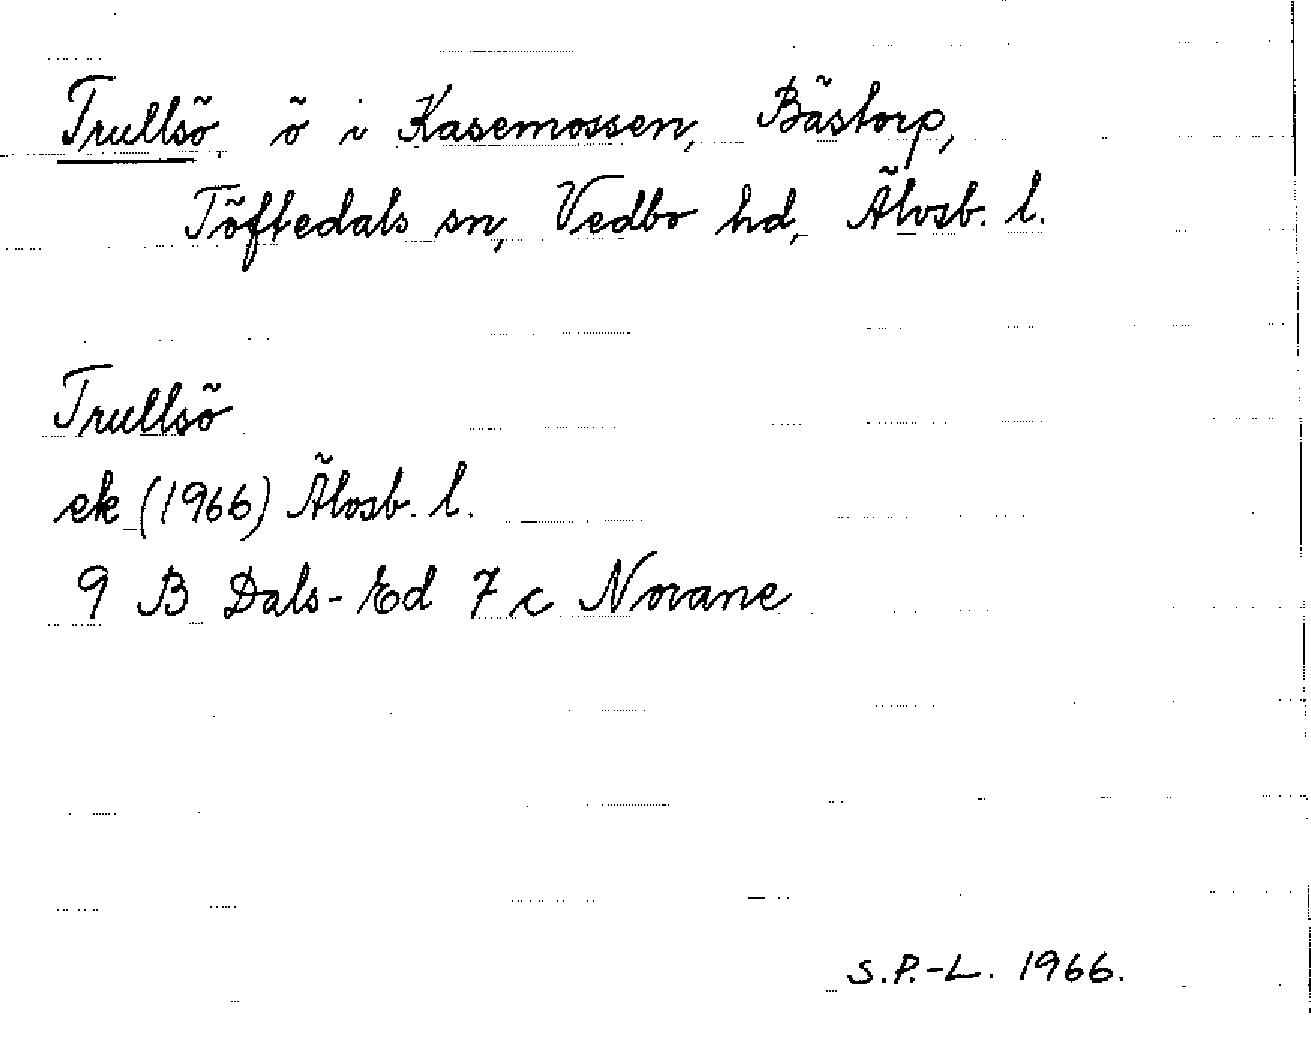 Trullsö, ö i Kasemossen, Bästorp,
Töftedals sn, Vedbo hd, Älvsb. l.
Trullsö
ek (1966) Älvsb. l.
9 B Dals-Ed 7 c Norane
S.P.-L. 1966.